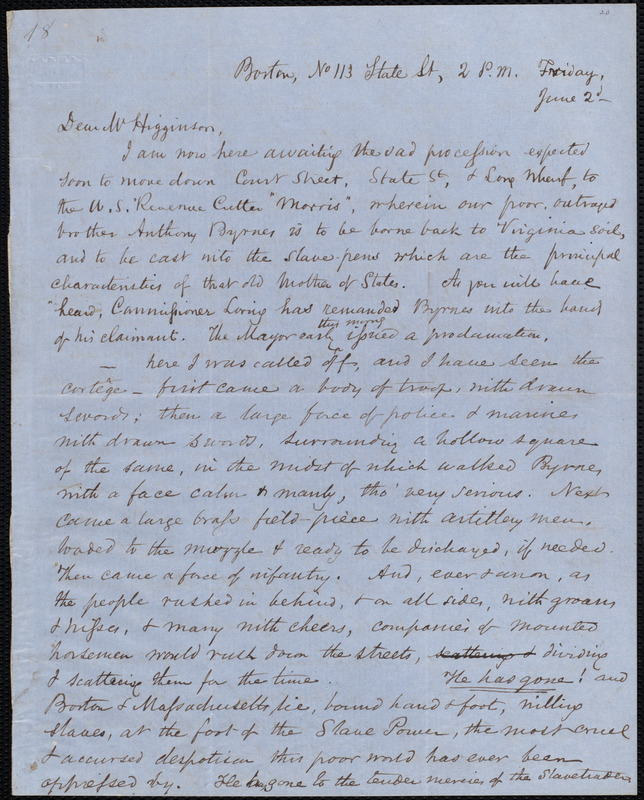 18
20
Boston, No 113 State St, 2 P.M. Friday,
June 2d
Dear Mr Higginson,
I am now here awaiting the sad procession expected
soon to move down Court Street, State St, & Long Wharf, to
the U.S. Revenue Cutter "Morris", wherein our poor, outraged
brother Anthony Byrnes is to be borne back to Virginia soil,
and to be cast into the slave-pens which are the principal
characteristics of that old Mother of States. As you will have
heard, Commissioner Loring has remanded Byrnes into the hand
this morng
of his claimant. The Mayor early issued a proclamation,
— here I was called off, and I have seen the
cortège — first came a body of troops, with drawn
swords; then a large force of police & marines
with drawn swords, surrounding a hollow square
of the same, in the midst of which walked Byrnes,
with a face calm & manly, tho' very serious. Next
came a large brass field-piece with artillery men,
loaded to the muzzle & ready to be discharged, if needed.
Then came a force of infantry. And, ever & anon, as
the people rushed in behind, & on all sides, with groans
& hisses, & many with cheers, companies of mounted
horsemen would rush down the streets, scattering & dividing
& scattering them for the time. He has gone! and
Boston & Massachusetts lie, bound hand & foot, willing
slaves, at the foot of the Slave Power, the most cruel
& accursed despotism this poor world has ever been
oppressed by. He has gone to the tender mercies of the Slavetraders